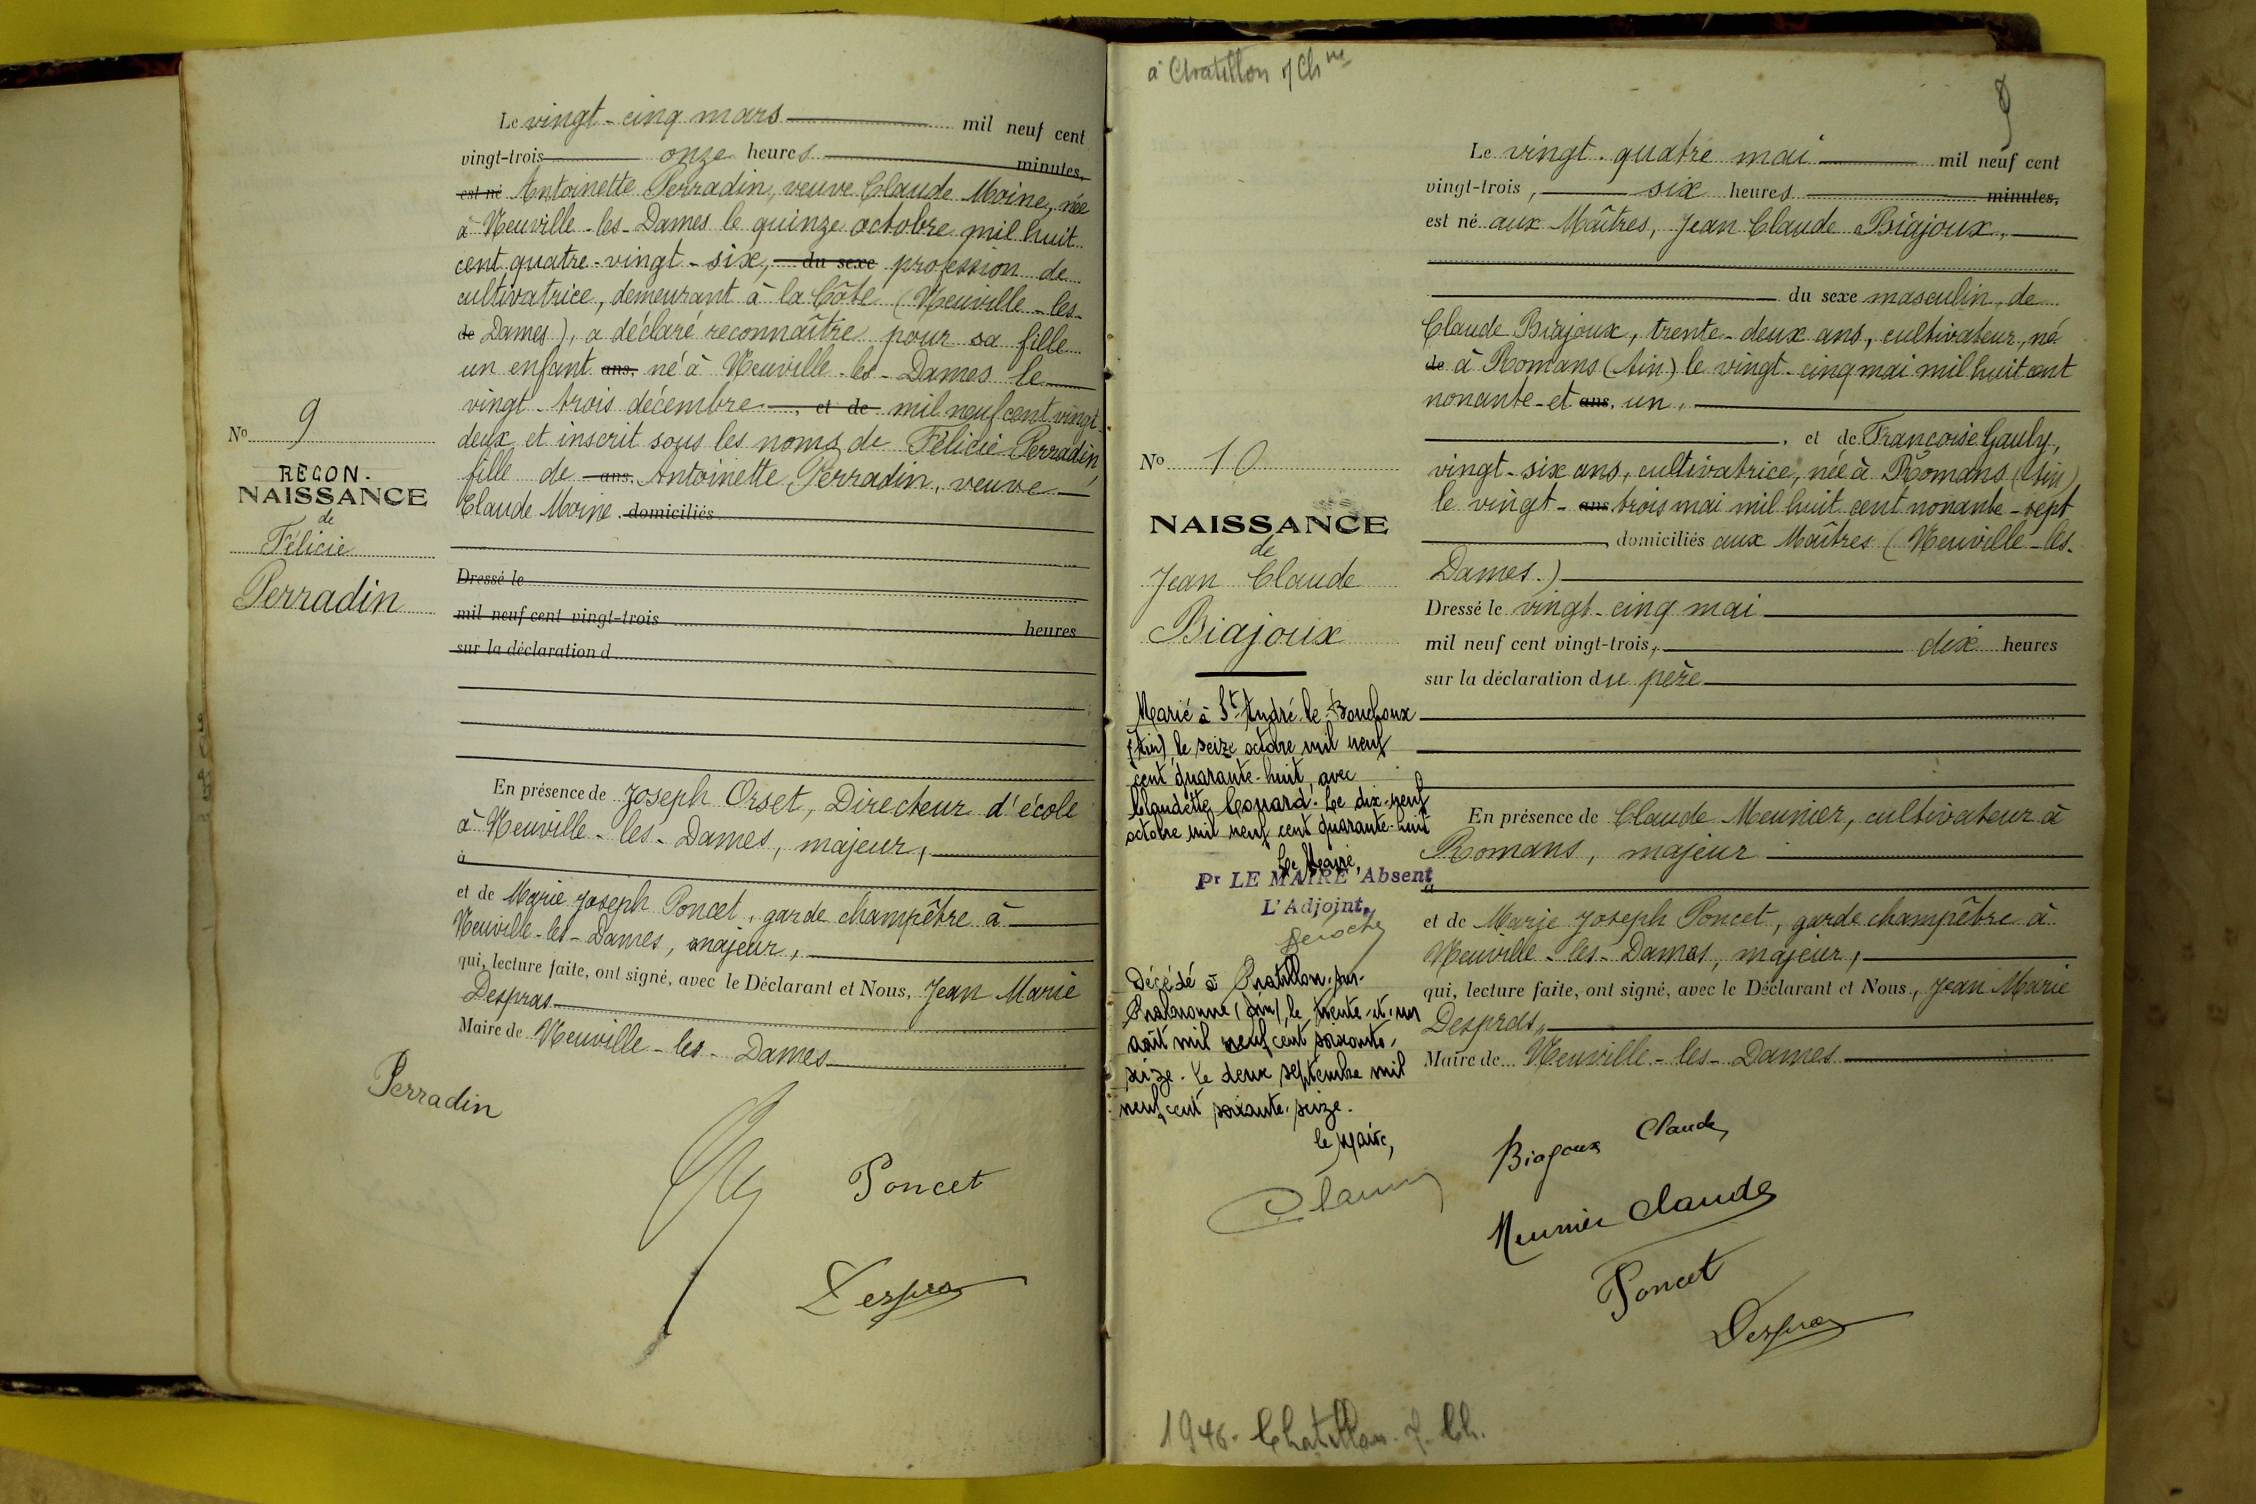 Le vingt-cinq mars mil neuf cent
vingt-trois onze heures minutes,
est né Antoinette Perradin, veuve Claude Moine, née
à Neuville-les-Dames le quinze octobre mil huit
cent quatre-vingt-six, du sexe profession de
cultivatrice, demeurant à la Côte (Neuville-les-
de Dames), a déclaré reconnaître pour sa fille
un enfant ans, né à Neuville-les-Dames le
vingt-trois décembre, et de mil neuf cent vingt-
deux et inscrit sous les noms de Félicie Perradin,
fille de ans, Antoinette Perradin, veuve
Claude Moine. domiciliés
Dressé le
mil neuf cent vingt-trois heures
sur la déclaration d
En présence de Joseph Orset, Directeur d'école
à Neuville-les-Dames, majeur,
à
et de Marie Joseph Poncet, garde champêtre à
Neuville-les-Dames, majeur,
qui, lecture faite, ont signé, avec le Déclarant et Nous, Jean Marie
Despras
Maire de Neuville-les-Dames
No 9
RECON.
NAISSANCE
de
Félicie
Perradin
Perradin
Poncet
Despras
à Chatillon s/ Chne
9
Le vingt-quatre mai mil neuf cent
vingt-trois, six heures minutes,
est né aux Maîtres, Jean Claude Biajoux,
du sexe masculin, de
Claude Biajoux, trente-deux ans, cultivateur, né
de à Romans (Ain) le vingt-cinq mai mil huit cent
nonante-et ans, un,
, et de Françoise Gauly,
vingt-six ans, cultivatrice, née à Romans (Ain)
le vingt-ans trois mai mil huit cent nonante-sept
, domiciliés aux Maîtres (Neuville-les-
Dames.)
Dressé le vingt-cinq mai
mil neuf cent vingt-trois, dix heures
sur la déclaration du père
En présence de Claude Meunier, cultivateur à
Romans, majeur
à
et de Marie Joseph Poncet, garde champêtre à
Neuville-les-Dames, majeur,
qui, lecture faite, ont signé, avec le Déclarant et Nous, Jean Marie
Despras,
Maire de Neuville-les-Dames
No 10
NAISSANCE
de
Jean Claude
Biajoux
Marié à St André-le-Bouchoux
(Ain), le seize octobre mil neuf
cent quarante-huit, avec
Claudette Conard. Le dix-neuf
octobre mil neuf cent quarante-huit
Le Maire,
Pr LE MAIRE Absent
L'Adjoint,
Décédé à Chatillon-sur-
Chalaronne (Ain), le trente-et-un
août mil neuf cent soixante-
seize. Le deux septembre mil
neuf cent soixante-seize.
le Maire,
Biajoux Claude
Meunier Claude
Poncet
Despras
1946. Chatillon s. Ch.